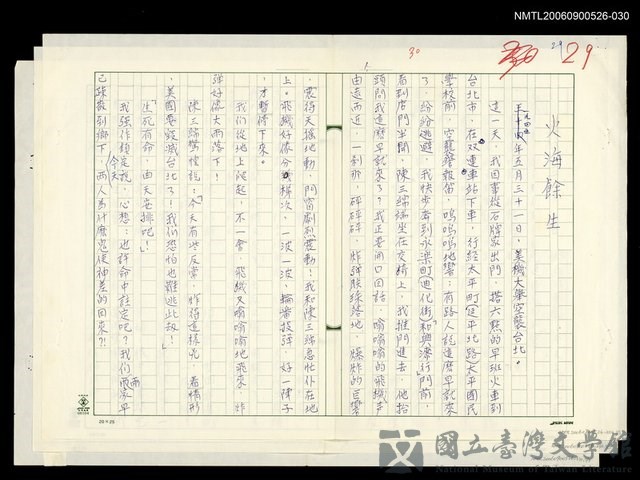 NMTL20060900526-030
29
30
火海餘生
五月三十一日,美機大舉空襲台北。
這一天,我因事從石牌家出門,搭六點的早班火車到
台北市,在双連車站下車,行經太平町(延平北路)太平國民
學校前,空襲警報笛,嗚嗚嗚地響;有路人說這麼早就來
了,紛紛逃避,我快步奔到永樂町(迪化街)和興潭行門前,
看到店門半開,陳三端坐在交椅上,我推門進去,他抬
頭問我這麼早就來了?我正要開口回話,嗡嗡嗡的飛機聲
由遠而近,一剎那,砰砰砰,炸彈陸續落地,爆炸的巨響
,震得天搖地動,門窗劇烈震動!我和陳三端急忙仆在地
上。飛機好像分梯次,一波一波,輪番投彈,好一陣子
,才暫停下來。
我們從地上爬起,不一會,飛機又嗡嗡嗡地飛來,炸
彈好像大雨落下!
陳三端驚惶說:「今天有些反常,炸得這樣兇,看情形
,美國要毀滅台北了!我們恐怕也難逃此劫!」
「生死有命,由天安排吧!」
我強作鎮定說,心想:也許命中註定吧?我們兩家早
已疎散到鄉下,今天兩人爲什麼鬼使神差的回來?!
國立臺灣文學館
National Museum of Taiwan Literature